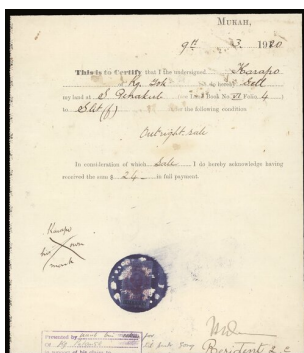 MUKAH,
9th 3. 1920
This is to Certify that I the undersigned Karapo
Kg. Joh do hereby Sell
my land at S. Penakub Book No. VI Folio 4
to Slit (f) for the following condition
Outright sale
In consideration of which Sale I do hereby acknowledge having
received the sum $ 24 - in full payment.
Karapo
his own
mark
Presented by
of Kg
in support of his claim to
President 2